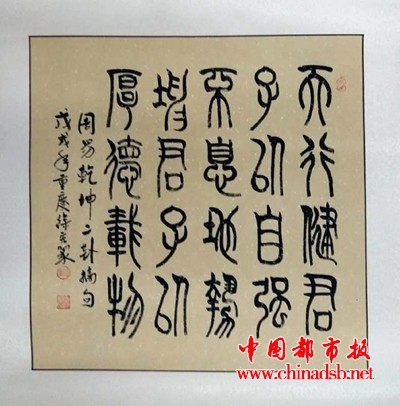 天行健君
子以自强
不息地勢
坤君子以
厚德載物
周易乾坤二卦摘句
戊戌年重慶徐篆
中国都市报
www.chinadsb.net